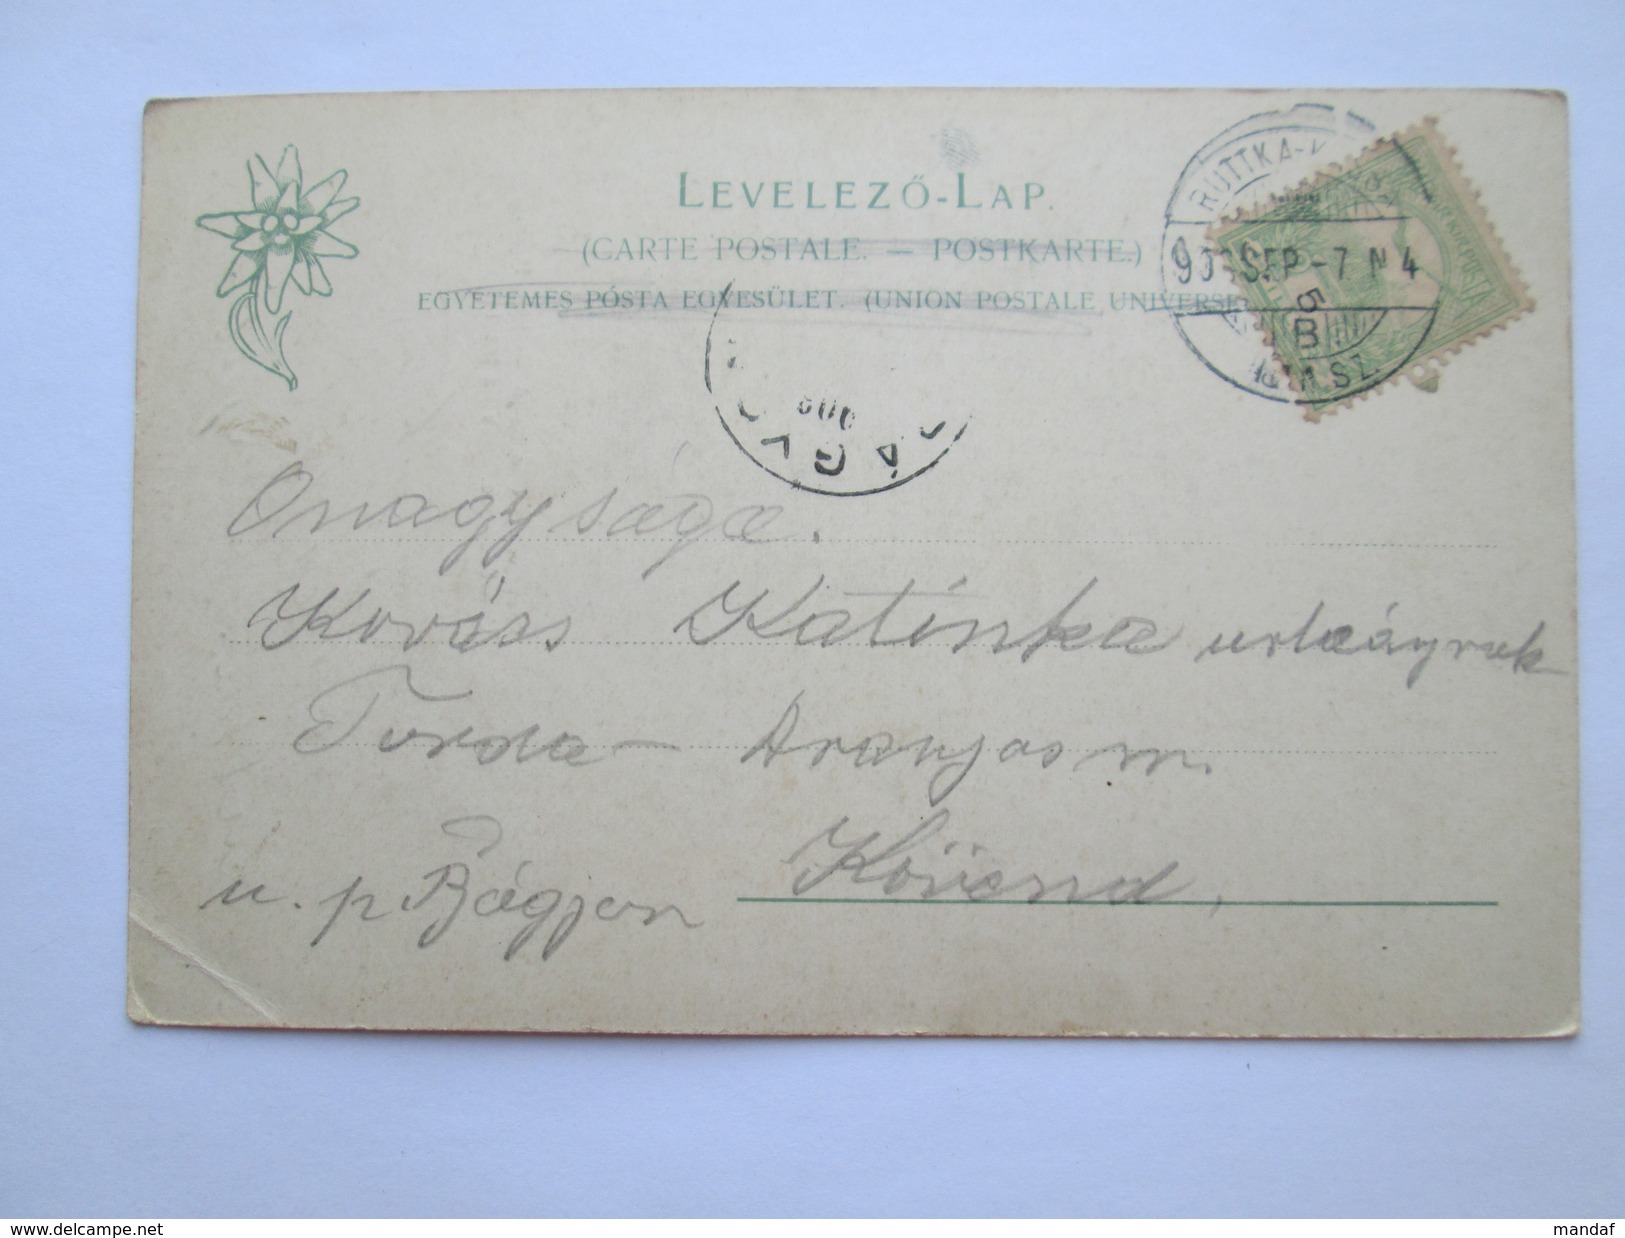 LEVELEZŐ-LAP.
(CARTE POSTALE. — POSTKARTE.)
EGYETEMES PÓSTA EGYESÜLET. (UNION POSTALE UNIVERSE
RUTTKA-
SEP -7 N 4
5
B
SZ.
ÁGY
Onagysága.
Kovács Katinka urleánynak
Torda- Aranyos m.
Kövend,
u. p Bágyon
www.delcampe.net
mandaf